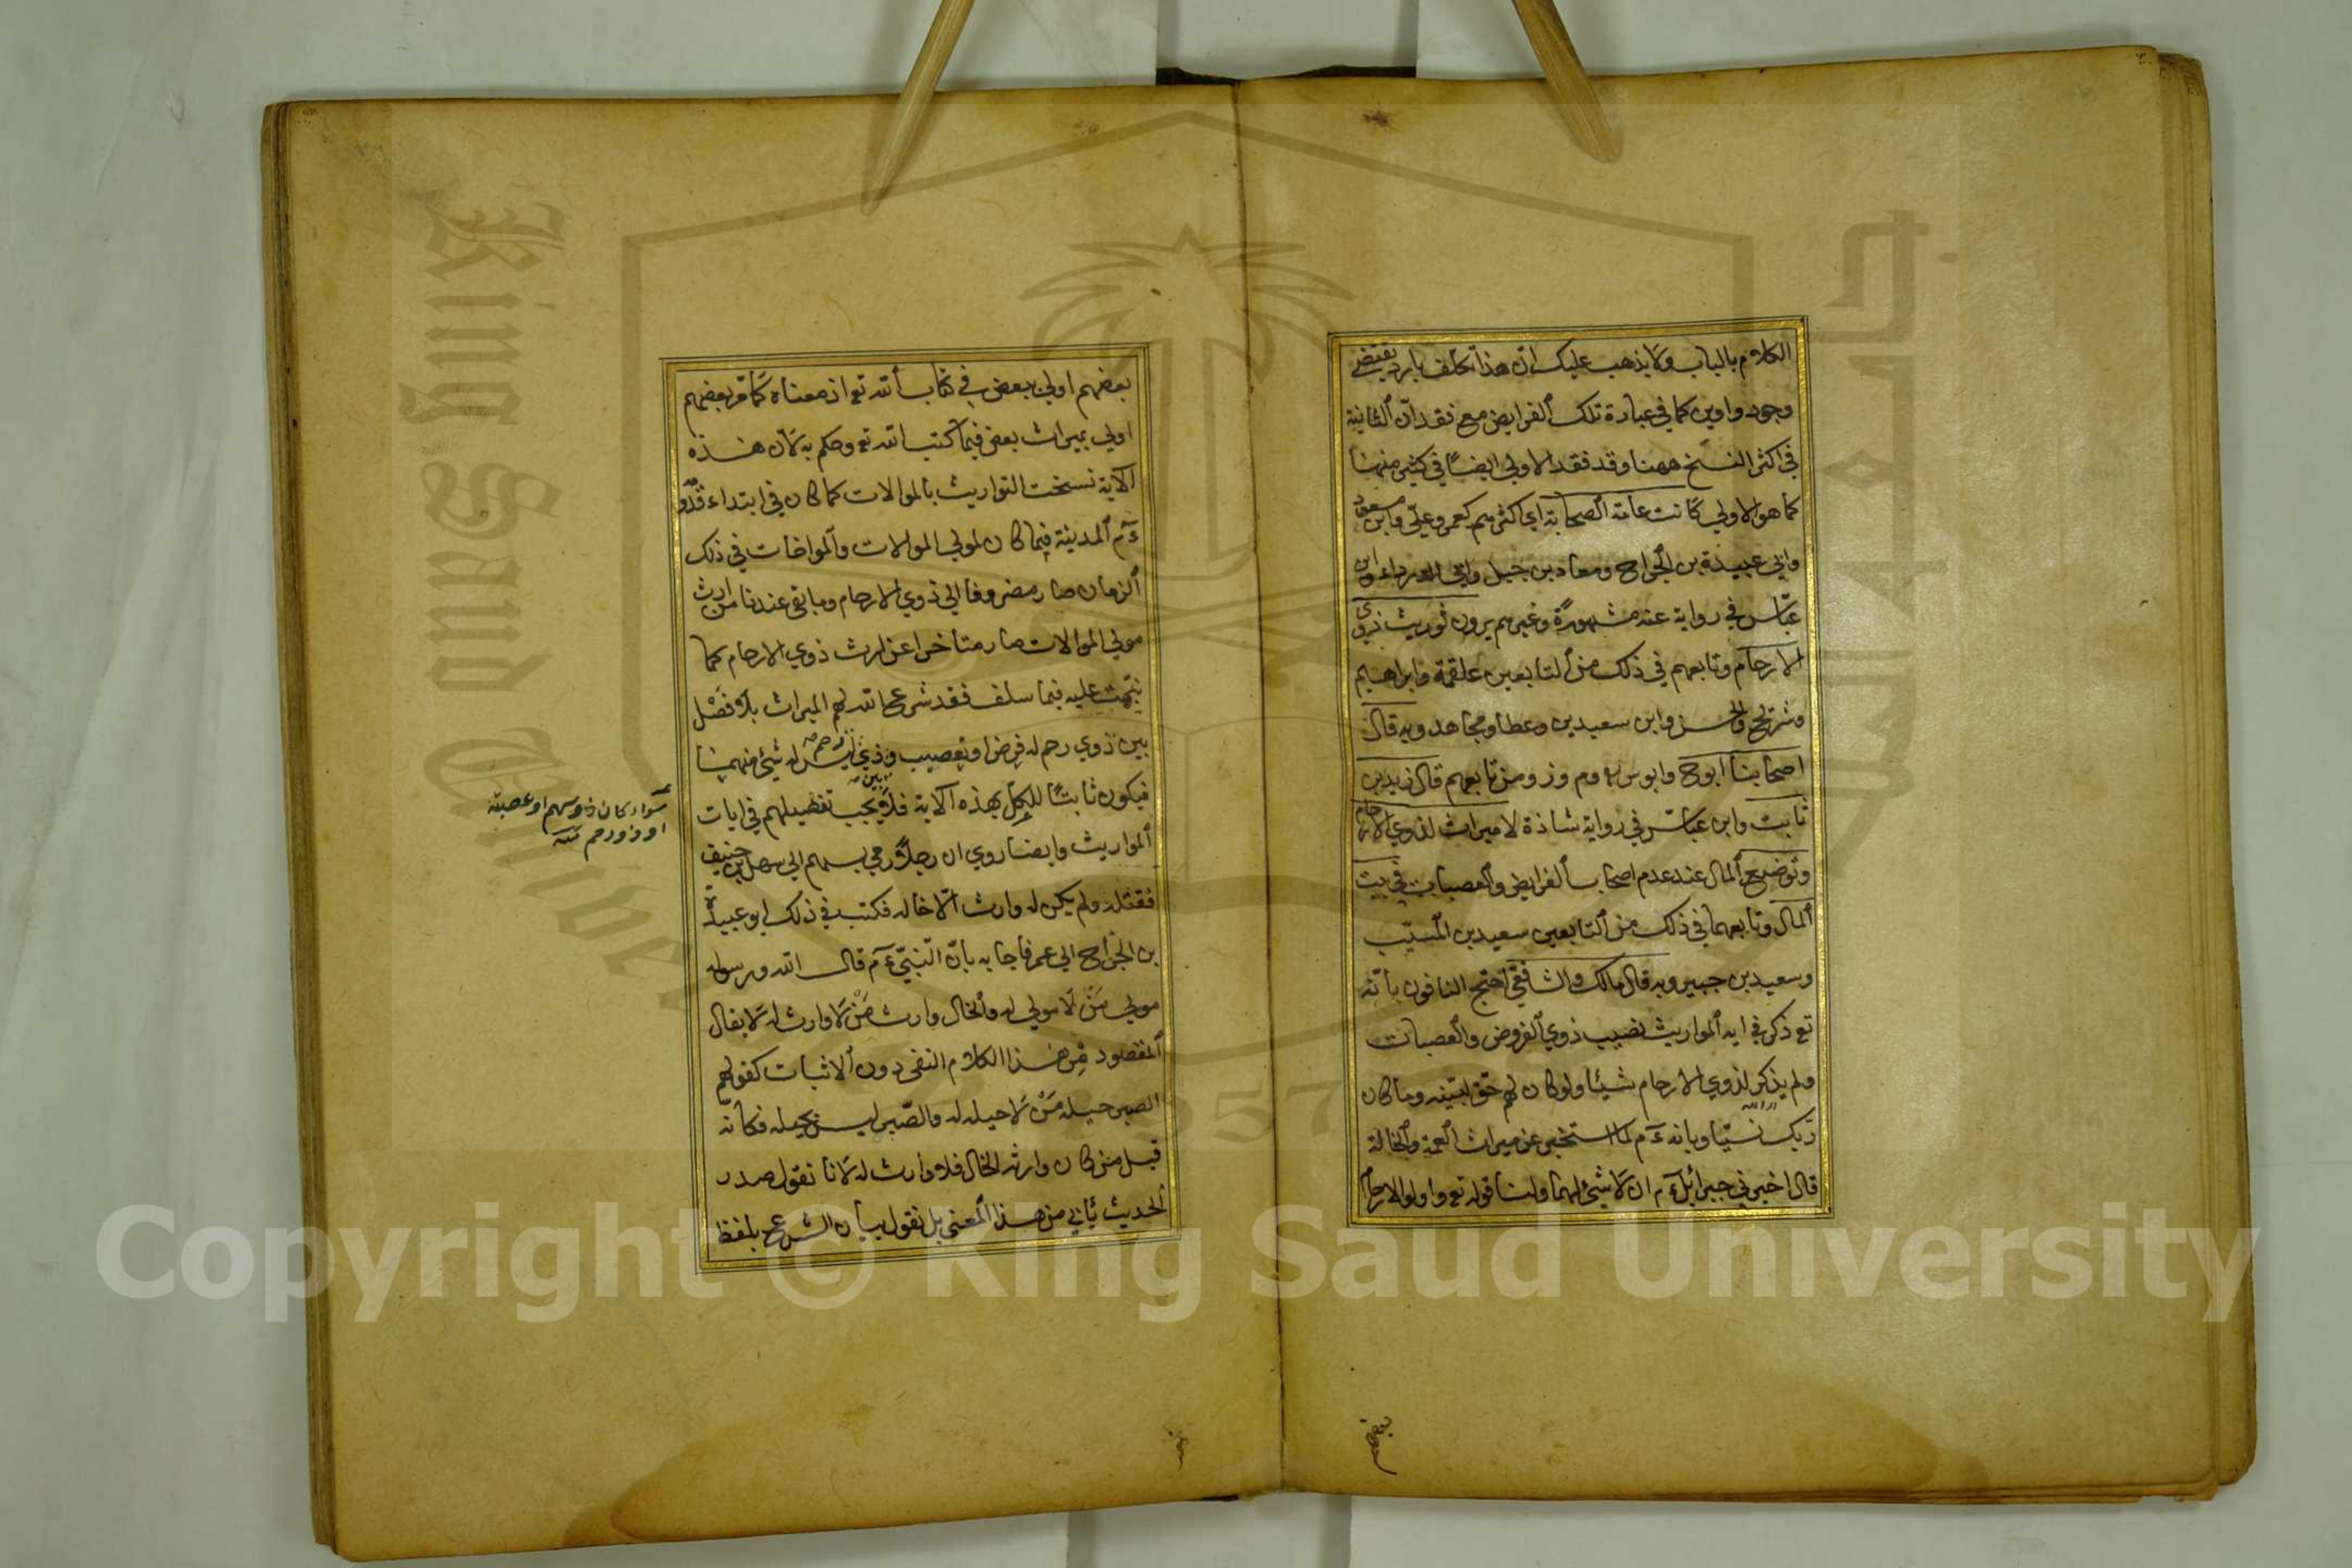 الكلام بالباب ولا يذهب عليك ان هذا تكلف بارد يقتضي
وجود واوين كما في عبارة تلك الفرايض مع فقدان الثانية
في اكثر النسخ ههنا وقد فقد الاولي ايضًا في كثير منها
كما هو الاولي كانت عامة الصحابة اي اكثرهم كعمر وعلي وابن مسعود
وابي عبيدة بن الجراح ومعاد بن جبل وابي الدرداء وابن
عباس في رواية عنه مشهورة وغيرهم يرون توريث ذوي
الارحام وتابعهم في ذلك من التابعين علقمة وابراهيم
وشريح والحسن وابن سعيدين وعطا ومجاهد وبه قال
اصحابنا ابوح وابوس وم وزر ومن تابعهم قال زيد بن
ثابت وابن عباس في رواية شاذة لا ميراث لذوي الارحام
وتوضيع المال عند عدم اصحاب الفرايض والعصبات في بيت
المال وتابعهما في ذلك من التابعين سعيد بن المسيب
وسعيد بن جبير وبه قال مالك والشافعي احتج النافون بانه
تع ذكر في ايه المواريث نصيب ذوي الفروض والعصبات
ولم يذكر لذوي الارحام شيئا ولو كان لهم حق لبينه وما كان
ربك نسيا وبانه ءم لما استخبر عن ميراث العمة والخالة
قال اخبرني جبرائيل ءم ان لا شيء لهما ولنا قوله تع واولوا الارحام
بعضهم
بعضهم اولي ببعض في كتاب الله تع اذ معناه كما مر بعضهم
اولي بميراث بعض فيما كتب الله تع وحكم به لان هذه
الاية نسخت التواريث بالموالات كما كان في ابتداء قدو
ءم المدينة فيما كان لمولي الموالات والمواخات في ذلك
الزمان صار مصروفا الي ذوي الارحام وما بقي عندنا من ارث
مولي الموالات صار متاخرا عن ارث ذوي الارحام كما
نبهت عليه فيما سلف فقد شرع الله لهم الميراث بلا فصل
بين ذوي رحم له فرض او تعصيب وذي رحم ليس له شيء منهما
فيكون ثابتًا للكل بهذه الاية فلا يجب تفصيلهم في ايات
المواريث وايضا روي ان رجلا رمي بسهم الي سهل بن حنيف
فقتله ولم يكن له وارث الا خاله فكتب في ذلك ابو عبيدة
بن الجراح الي عمر فاجابه بان النبي ءم قال الله ورسوله
مولي من لا مولي له والخال وارث من لا وارث له لا يقال
المقصود من هذا الكلام النفي دون الاثبات كقولهم
الصبر حيله من لا حيله له والصبر ليس بحيله فكانه
قيل من كان وارثه الخال فلا وارث له لانا نقول صدر
الحديث يأبي من هذا المعني بل نقول بيان الشرع بلفظ
سواء كان ذو سهم او عصبة
او ذو رحم منه
Copyright © King Saud University
King Saud
1957